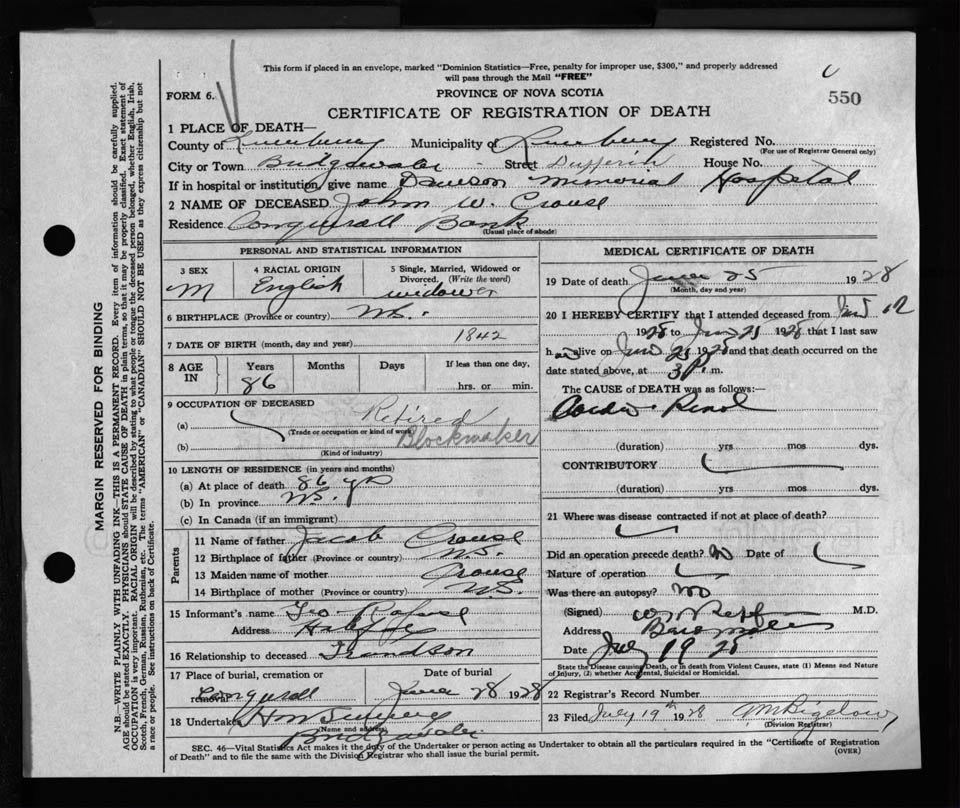 This form if placed in an envelope, marked "Dominion Statistics—Free, penalty for improper use, $300," and properly addressed
will pass through the Mail "FREE"
FORM 6.
PROVINCE OF NOVA SCOTIA
550
CERTIFICATE OF REGISTRATION OF DEATH
1 PLACE OF DEATH—
County of Lunenburg Municipality of Lunenburg Registered No.
(For use of Registrar General only)
City or Town Bridgewater Street Dufferin House No.
If in hospital or institution, give name Dawson Memorial Hospital
2 NAME OF DECEASED John W. Crouse
Residence Conquerall Bank
(Usual place of abode)
PERSONAL AND STATISTICAL INFORMATION
3 SEX
M
4 RACIAL ORIGIN
English
5 Single, Married, Widowed or
Divorced. (Write the word)
widower
6 BIRTHPLACE (Province or country) N.S.
7 DATE OF BIRTH (month, day and year) 1842
8 AGE
IN
Years
86
Months
Days
If less than one day,
hrs. or min.
9 OCCUPATION OF DECEASED
(a) Retired
(Trade or occupation or kind of work)
(b) Blockmaker
(Kind of industry)
10 LENGTH OF RESIDENCE (in years and months)
(a) At place of death 86 yrs
(b) In province N.S.
(c) In Canada (if an immigrant)
Parents
11 Name of father Jacob Crouse
12 Birthplace of father (Province or country) N.S.
13 Maiden name of mother Crouse
14 Birthplace of mother (Province or country) N.S.
15 Informant's name Geo
Address Halifax
16 Relationship to deceased Grandson
17 Place of burial, cremation or
removal Conquerall
Date of burial
June 28 1928
18 Undertaker
(Name and address)
Bridgewater
MEDICAL CERTIFICATE OF DEATH
19 Date of death June 25 1928
(Month, day and year)
20 I HEREBY CERTIFY that I attended deceased from June 12
1928 to June 25 1928 that I last saw
h alive on June 25 1928 and that death occurred on the
date stated above, at 3 P. m.
The CAUSE OF DEATH was as follows:—
Cardio-Renal
(duration) yrs mos dys.
CONTRIBUTORY
(duration) yrs mos dys.
21 Where was disease contracted if not at place of death?
Did an operation precede death? no Date of
Nature of operation
Was there an autopsy? no
(Signed) M.D.
Address
Date July 19 28
State the Disease causing Death, or in death from Violent Causes, state (1) Means and Nature
of Injury, (2) whether Accidental, Suicidal or Homicidal.
22 Registrar's Record Number
23 Filed July 19th 1928 A M Bigelow
(Division Registrar)
SEC. 46—Vital Statistics Act makes it the duty of the Undertaker or person acting as Undertaker to obtain all the particulars required in the "Certificate of Registration
of Death" and to file the same with the Division Registrar who shall issue the burial permit.
(OVER)
MARGIN RESERVED FOR BINDING
N.B.—WRITE PLAINLY WITH UNFADING INK—THIS IS A PERMANENT RECORD. Every item of information should be carefully supplied.
AGE should be stated EXACTLY. PHYSICIANS should STATE CAUSE OF DEATH in plain terms, so that it may be properly classified. Exact statement of
OCCUPATION is very important. RACIAL ORIGIN will be described by stating to what people or tongue the deceased person belonged, whether English, Irish,
Scotch, French, German, Russian, Ruthenian, etc. The terms "AMERICAN" or "CANADIAN" SHOULD NOT BE USED as they express citizenship but not
a race or people. See instructions on back of Certificate.